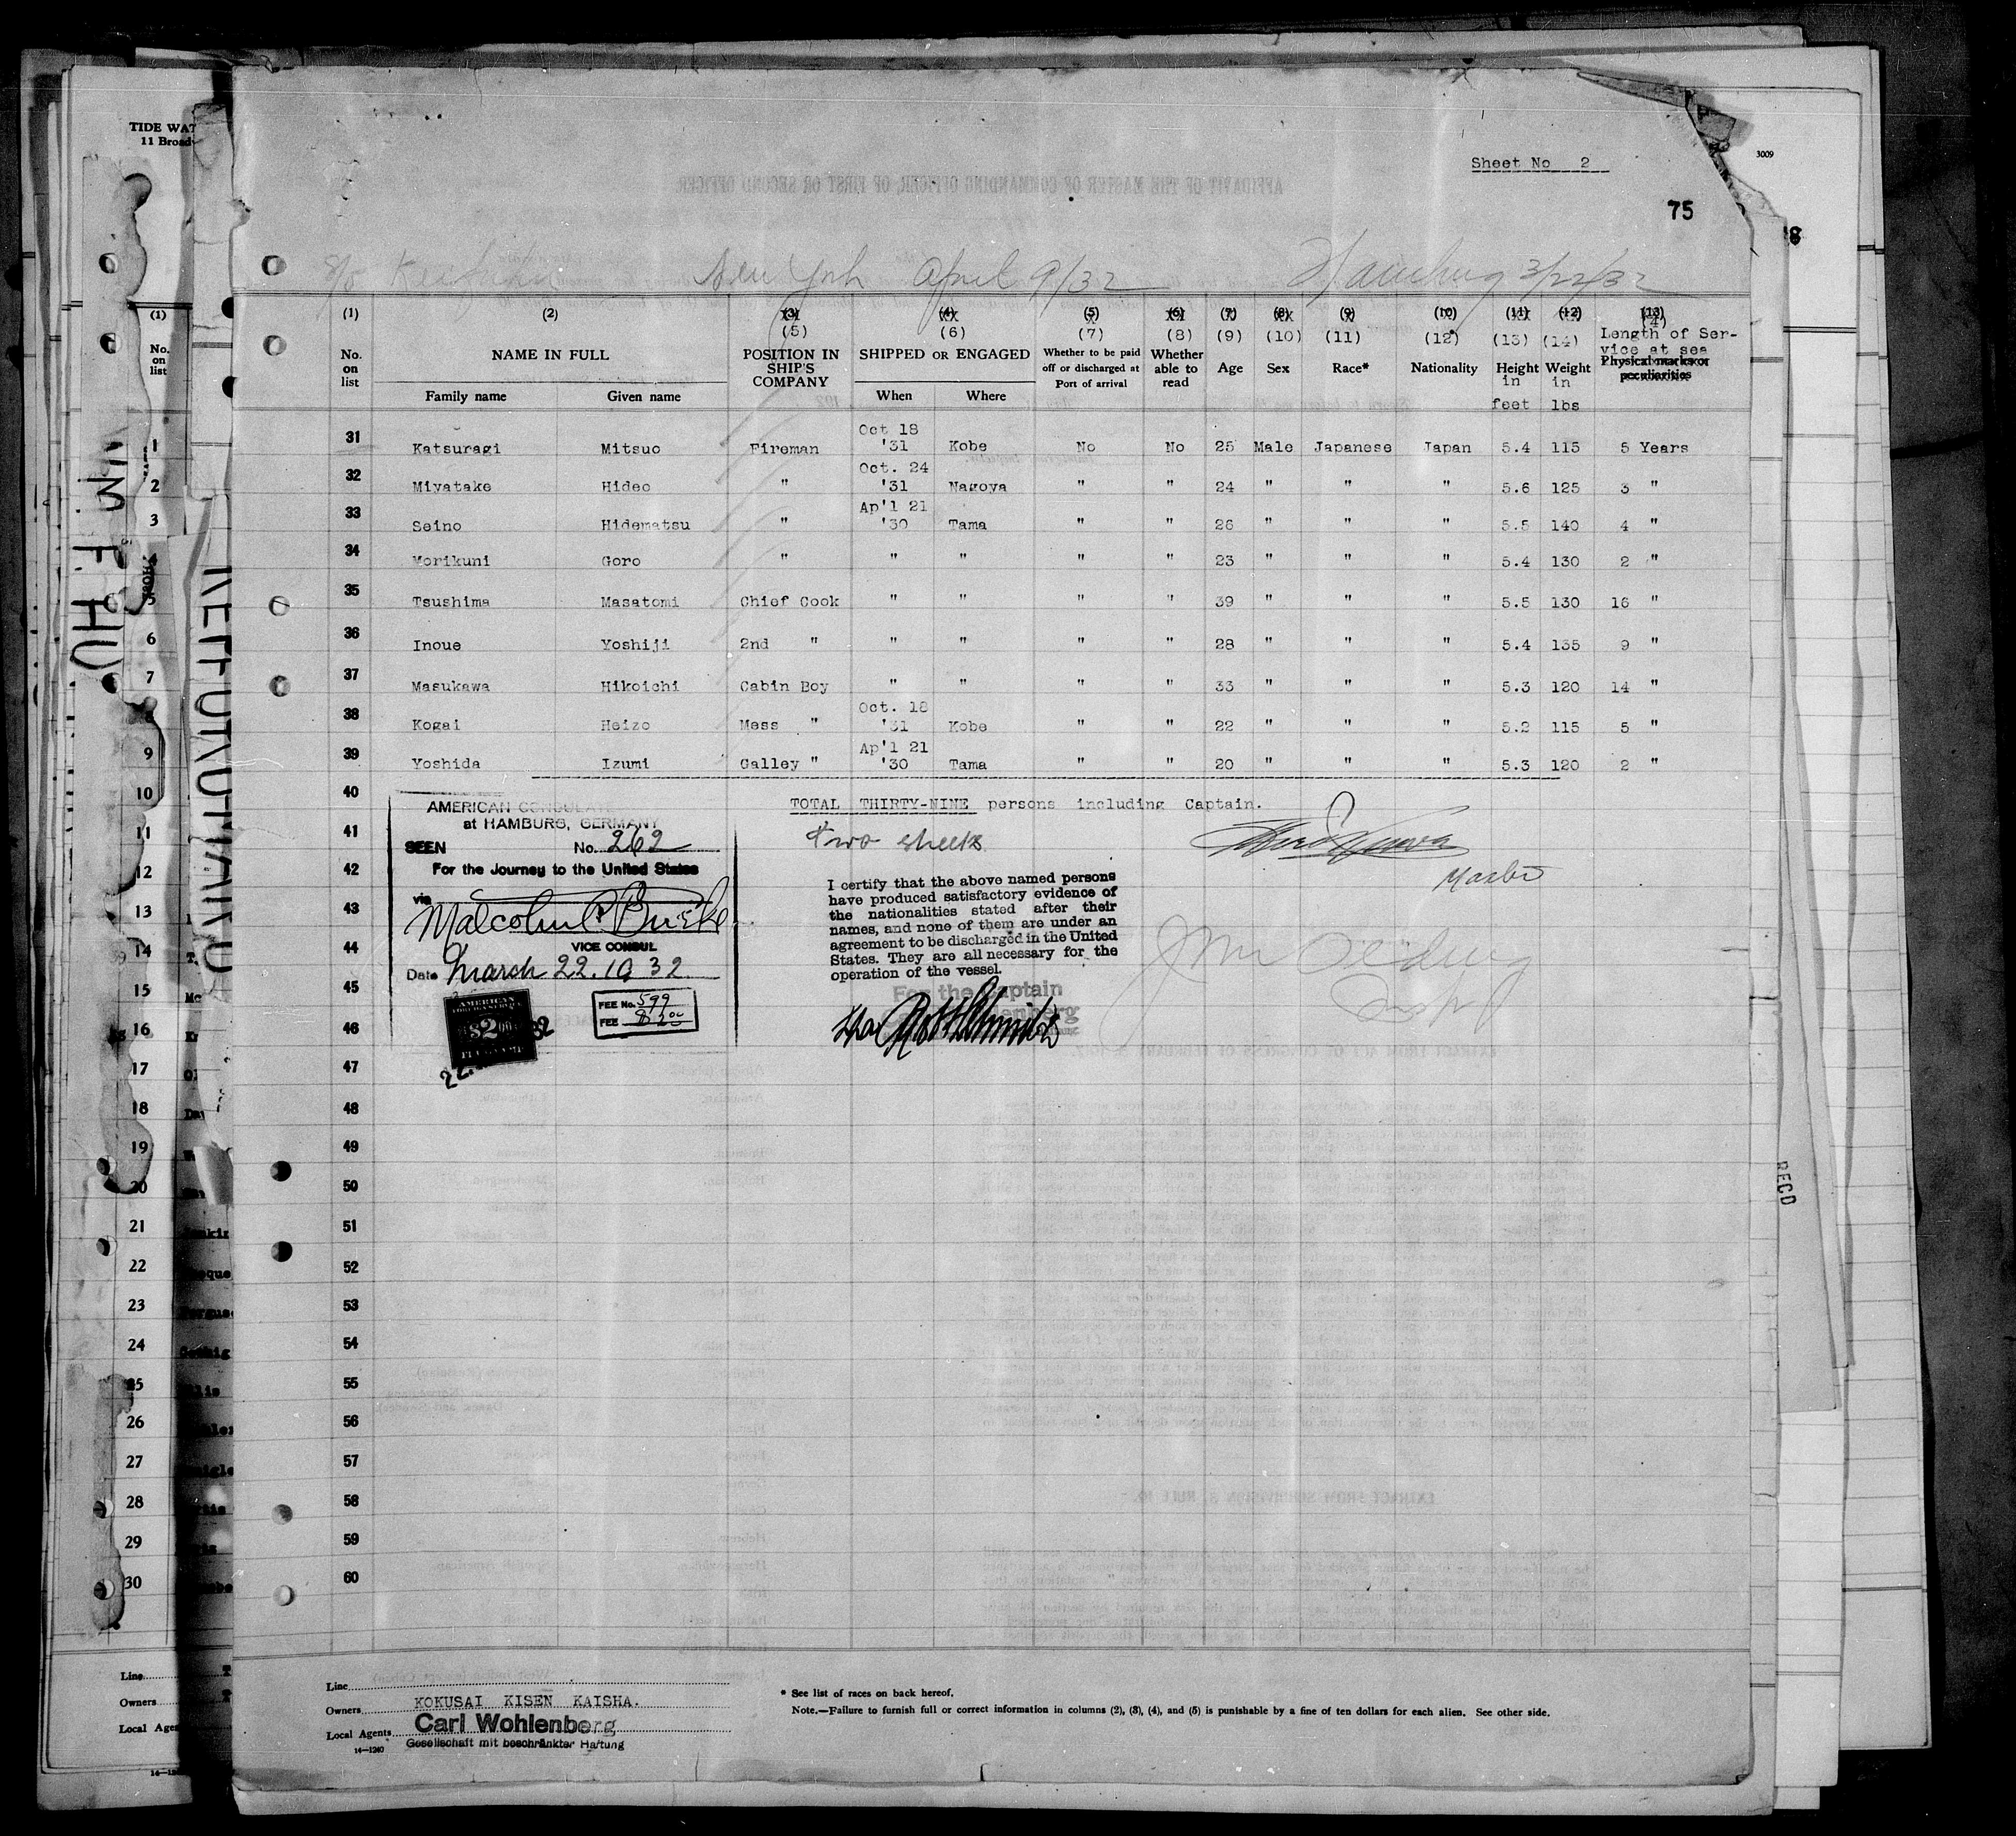 TIDE WAT
11 Broad
3009
Sheet No 2
75
New York April 9/32 Hamburg 3/22/32
(1) (2) (3) (4) (5) (6) (7) (8) (9) (10) (11) (12) (13)
(5) (6) (7) (8) (9) (10) (11) (12) (13) (14) (4)
No. on list
NAME IN FULL
Family name Given name
POSITION IN SHIP'S COMPANY
SHIPPED OR ENGAGED
When Where
Whether to be paid off or discharged at Port of arrival
Whether able to read
Age Sex Race* Nationality
Height in feet
Weight in lbs
Length of Service at sea
Physical marks or peculiarities
31 Katsuragi Mitsuo Fireman Oct 18 '31 Kobe No No 25 Male Japanese Japan 5.4 115 5 Years
32 Miyatake Hideo " Oct. 24 '31 Nagoya " " 24 " " " 5.6 125 3 "
33 Seino Hidematsu " Ap'l 21 '30 Tama " " 26 " " " 5.5 140 4 "
34 Morikuni Goro " " " " " 23 " " " 5.4 130 2 "
35 Tsushima Masatomi Chief Cook " " " " 39 " " " 5.5 130 16 "
36 Inoue Yoshiji 2nd " " " " " 28 " " " 5.4 135 9 "
37 Masukawa Hikoichi Cabin Boy " " " " 33 " " " 5.3 120 14 "
38 Kogai Heizo Mess " Oct. 18 '31 Kobe " " 22 " " " 5.2 115 5 "
39 Yoshida Izumi Galley " Ap'l 21 '30 Tama " " 20 " " " 5.3 120 2 "
40
TOTAL THIRTY-NINE persons including Captain.
two sheets
Master
AMERICAN CONSULATE
at HAMBURG, GERMANY
SEEN No. 262
For the Journey to the United States
via
Malcolm P Burke
VICE CONSUL
Date March 22. 1932
AMERICAN
$2.00
FEE No. 599
FEE $2.00
I certify that the above named persons
have produced satisfactory evidence of
the nationalities stated after their
names, and none of them are under an
agreement to be discharged in the United
States. They are all necessary for the
operation of the vessel.
For the Captain
41
42
43
44
45
46
47
48
49
50
51
52
53
54
55
56
57
58
59
60
Line
Owners KOKUSAI KISEN KAISHA.
Local Agents Carl Wohlenberg
Gesellschaft mit beschränkter Haftung
14—1240
* See list of races on back hereof.
Note.—Failure to furnish full or correct information in columns (2), (3), (4), and (5) is punishable by a fine of ten dollars for each alien. See other side.
(1)
No. on list
1
2
3
4
5
6
7
8
9
10
11
12
13
14
15
16
17
18
19
20
21
22
23
24
25
26
27
28
29
30
Line
Owners
Local Agen
RECD